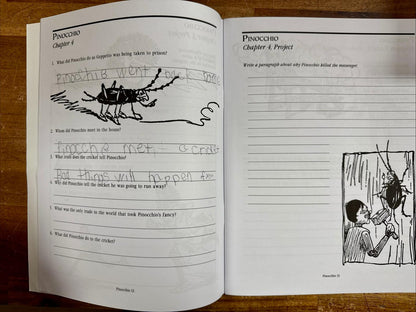 PINOCCHIO
Chapter 4
1. What did Pinocchio do as Geppetto was being taken to prison?
Pinocchio went back home
2. Whom did Pinocchio meet in the house?
Pinocchio met a
3. What truth does the cricket tell Pinocchio?
Bad things will happen
4. Why did Pinocchio tell the cricket he was going to run away?
5. What was the only trade in the world that took Pinocchio's fancy?
6. What did Pinocchio do to the cricket?
PINOCCHIO
Chapter 4, Project
Write a paragraph about why Pinocchio killed the messenger.